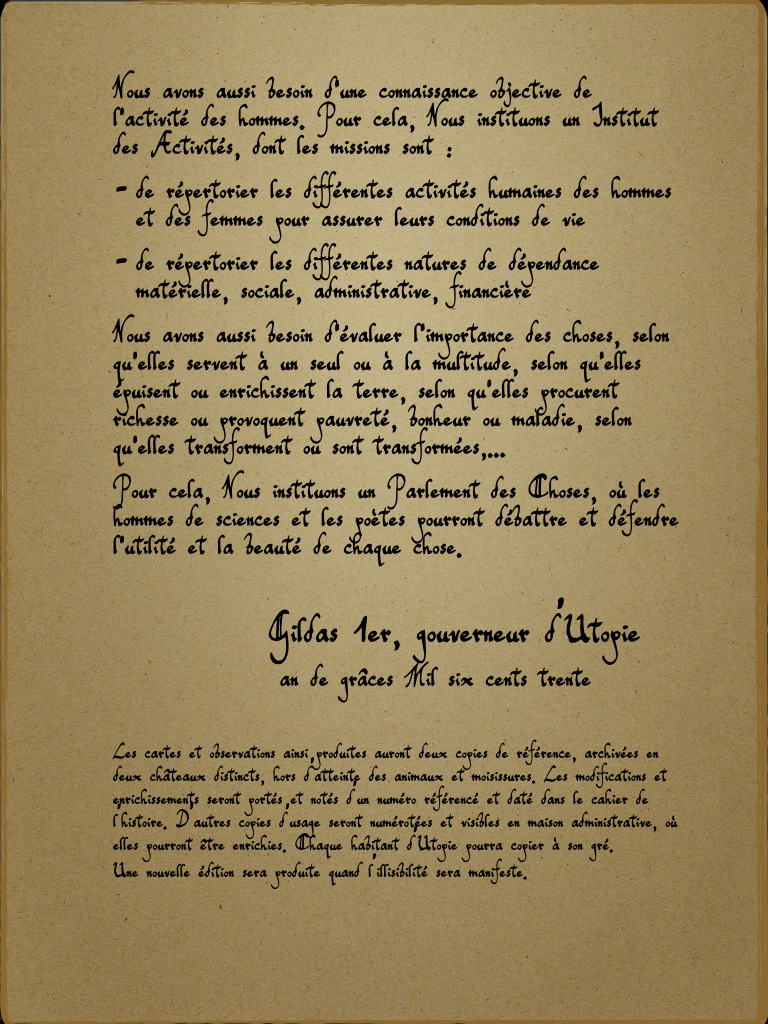 Nous avons aussi besoin d'une connaissance objective de
l'activité des hommes. Pour cela, Nous instituons un Institut
des Activités, dont les missions sont :
- de répertorier les différentes activités humaines des hommes
et des femmes pour assurer leurs conditions de vie
- de répertorier les différentes natures de dépendance
matérielle, sociale, administrative, financière
Nous avons aussi besoin d'évaluer l'importance des choses, selon
qu'elles servent à un seul ou à la multitude, selon qu'elles
épuisent ou enrichissent la terre, selon qu'elles procurent
richesse ou provoquent pauvreté, bonheur ou maladie, selon
qu'elles transforment ou sont transformées,...
Pour cela, Nous instituons un Parlement des Choses, où les
hommes de sciences et les poètes pourront débattre et défendre
l'utilité et la beauté de chaque chose.
Gildas 1er, gouverneur d'Utopie
an de grâces Mil six cents trente
Les cartes et observations ainsi produites auront deux copies de référence, archivées en
deux châteaux distincts, hors d'atteinte des animaux et moisissures. Les modifications et
enrichissements seront portés et notés d'un numéro référencé et daté dans le cahier de
l'histoire. D'autres copies d'usage seront numérotées et visibles en maison administrative, où
elles pourront être enrichies. Chaque habitant d'Utopie pourra copier à son gré.
Une nouvelle édition sera produite quand l'illisibilité sera manifeste.